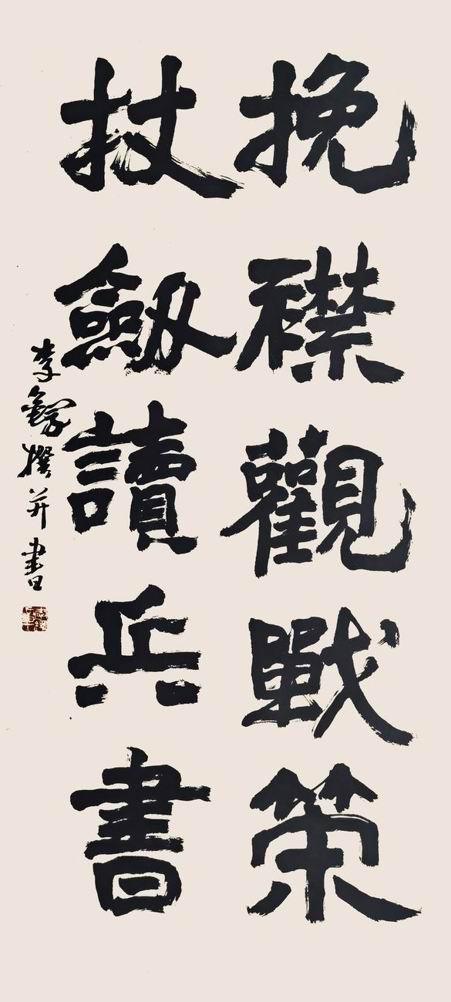 挽襟觀戰策
扙劒讀兵書
李鐸撰并書